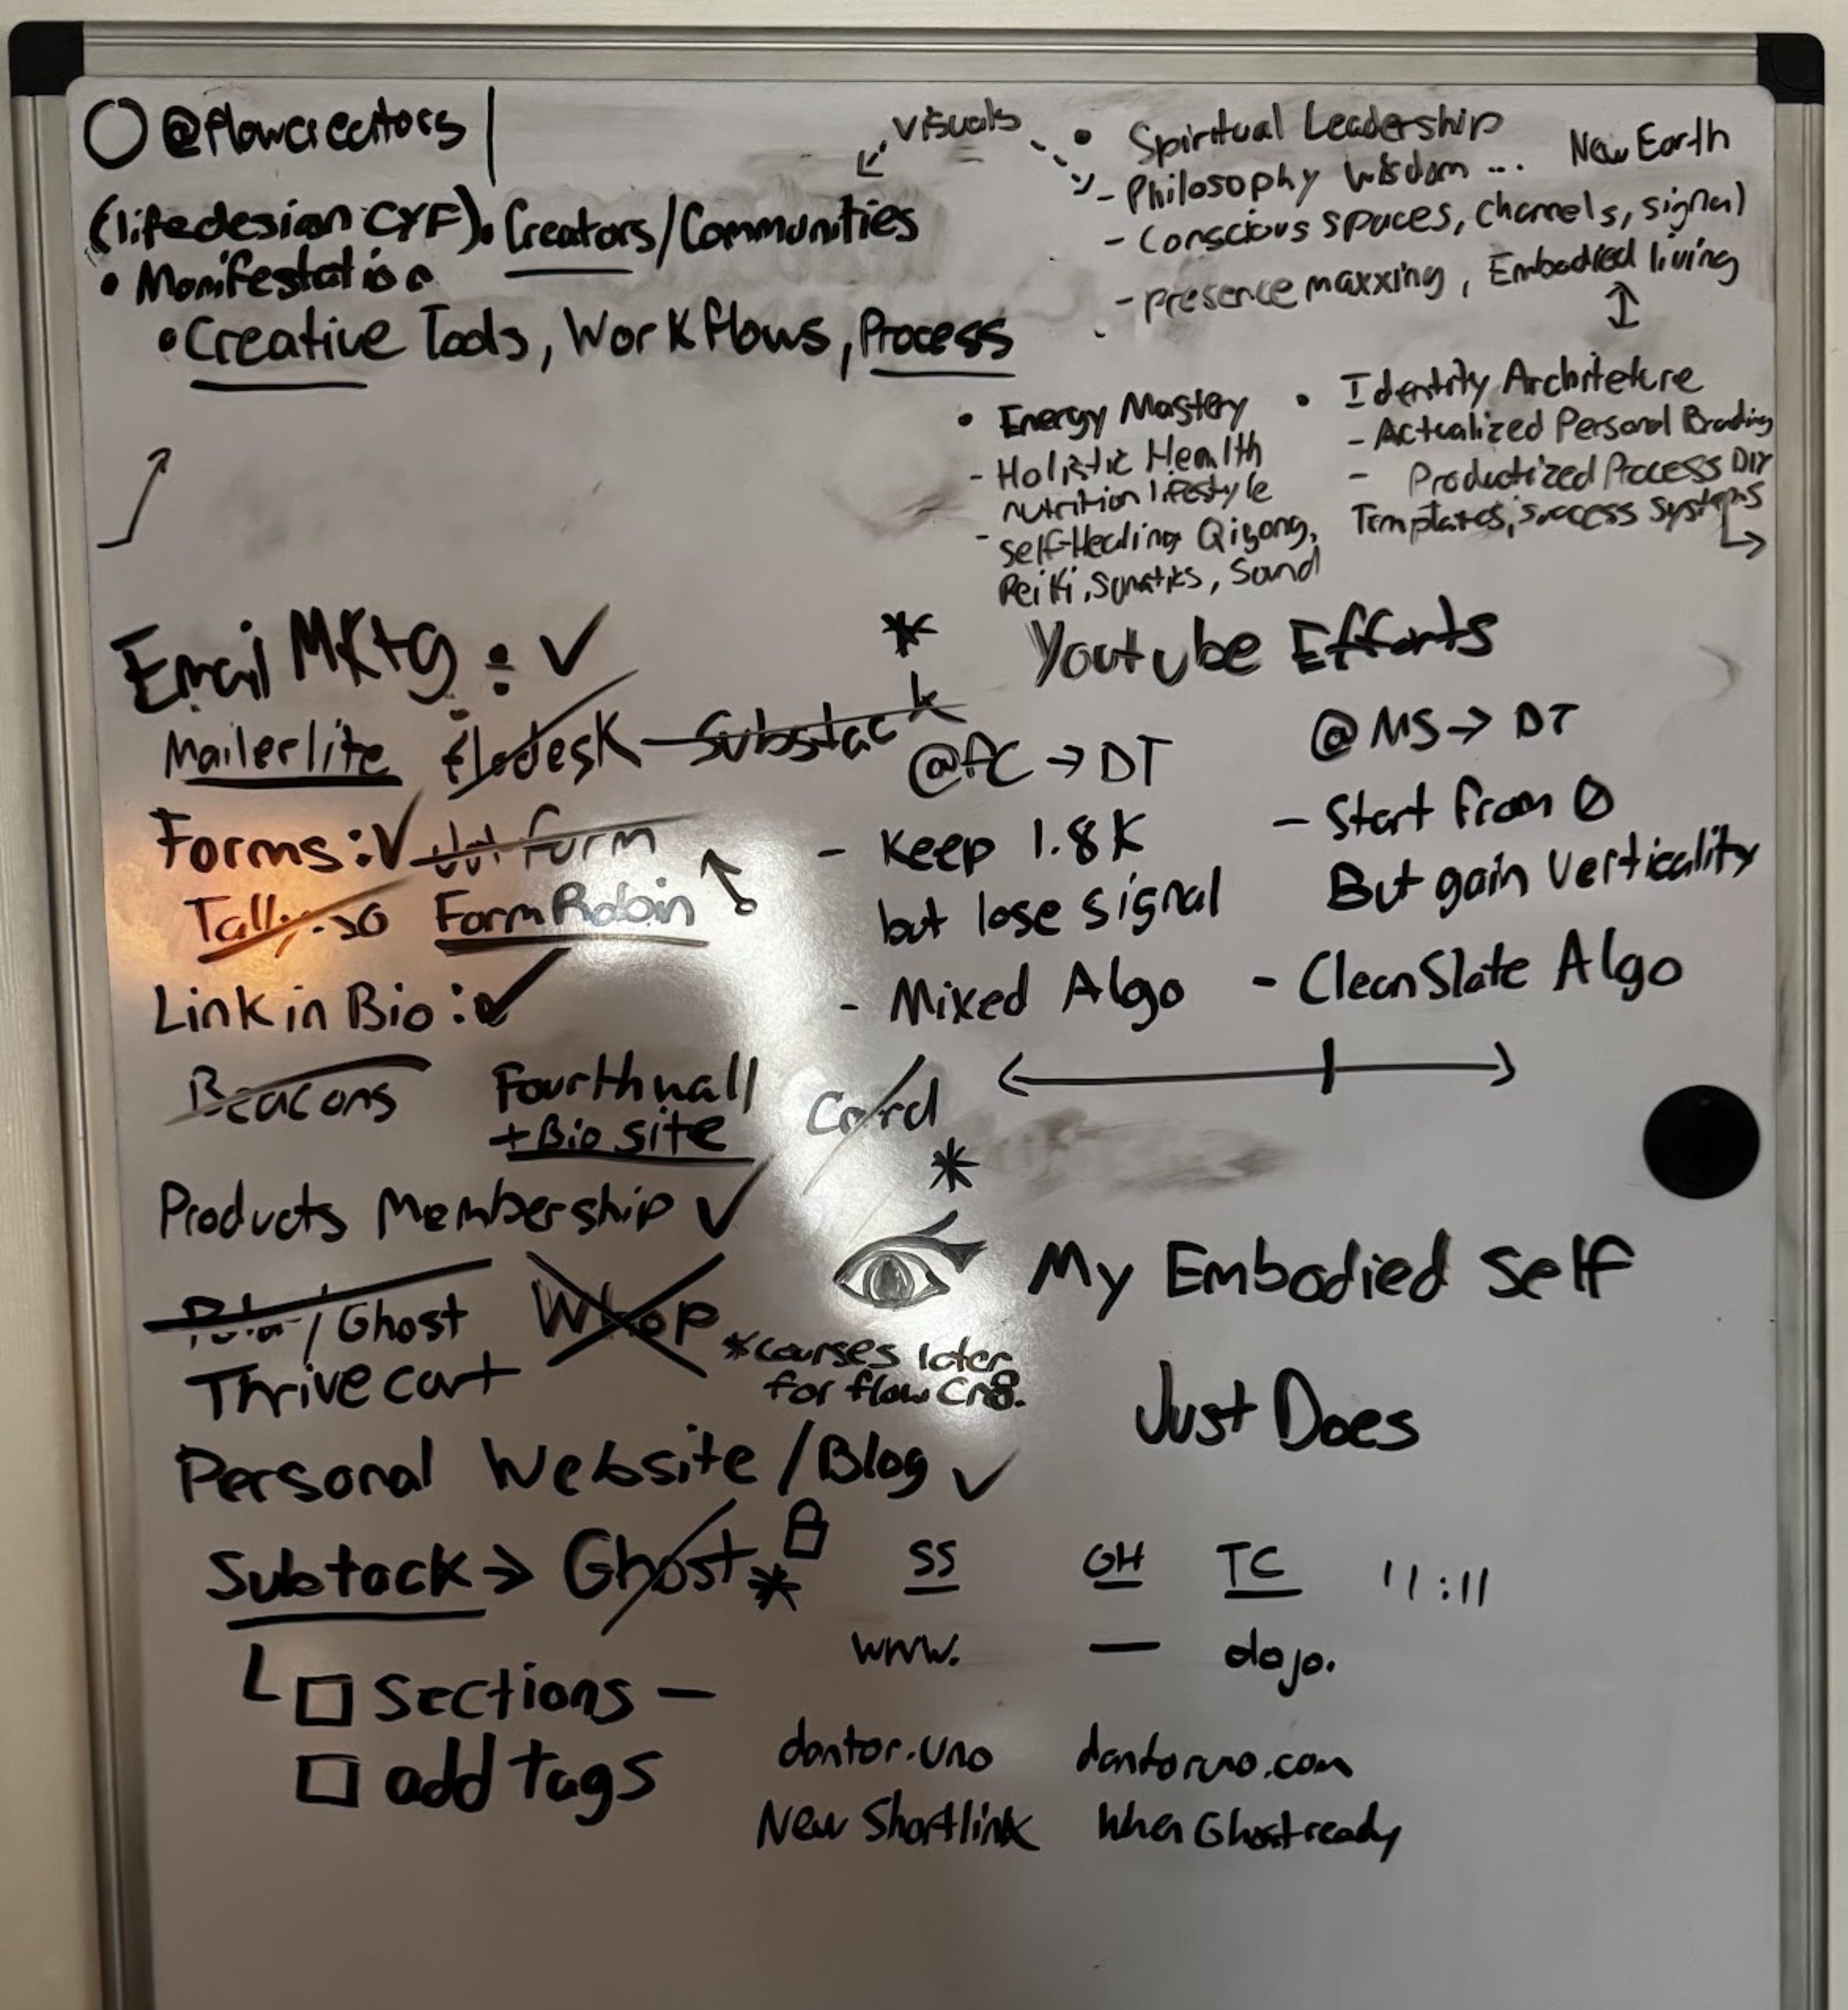 @flowcreators
visuals
(lifedesign CYF). Creators/Communities
• Manifestation
• Creative Tools, Workflows, Process
• Spiritual Leadership
New Earth
- Philosophy Wisdom ...
- Conscious spaces, channels, signal
- presence maxxing, Embodied living
• Energy Mastery
- Holistic Health
nutrition lifestyle
- Self-Healing Qigong,
Reiki, Somatiks, Sound
• Identity Architekre
- Actualized Personal Brading
- Productized Process DIY
Templates, success systems
Email Mktg: ✓
Mailerlite flodesk - Substack
Forms: ✓ Jot form
Tally.so FormRobin
Link in Bio: ✓
Beacons Fourthwall
+ Bio site
Carrd
Products Membership ✓
/Ghost Whop
Thrivecart
*courses later
for flow Cr8.
Personal Website/Blog ✓
Substack → Ghost *
□ Sections -
□ add tags
* Youtube Efforts
@fC → DT
- Keep 1.8K
but lose signal
- Mixed Algo
@MS → DT
- Start from 0
But gain Verticality
- Clean Slate Algo
*
My Embodied Self
Just Does
SS GH TC 11:11
www. — dojo.
dantor.uno dantoruno.com
New Shortlink When Ghost ready